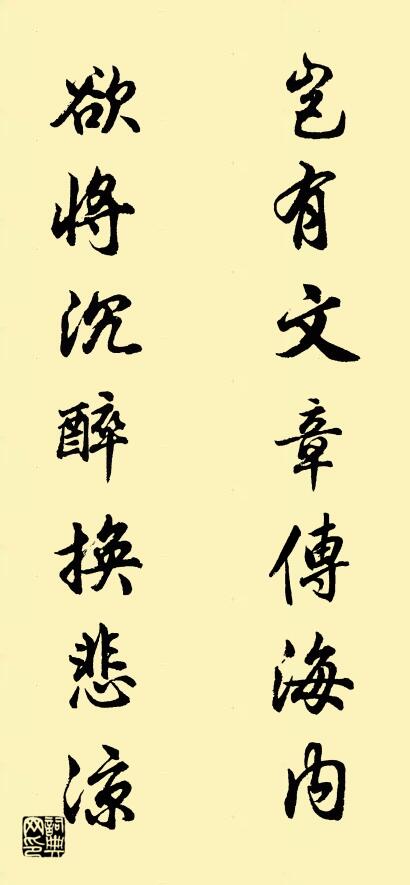 豈有文章傳海内
欲將沉醉換悲涼
詞典网印